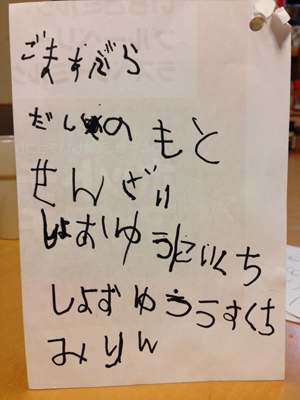 ごまあぶら
だしのもと
せんざい
しょおゆうこいくち
しょおゆううすくち
みりん